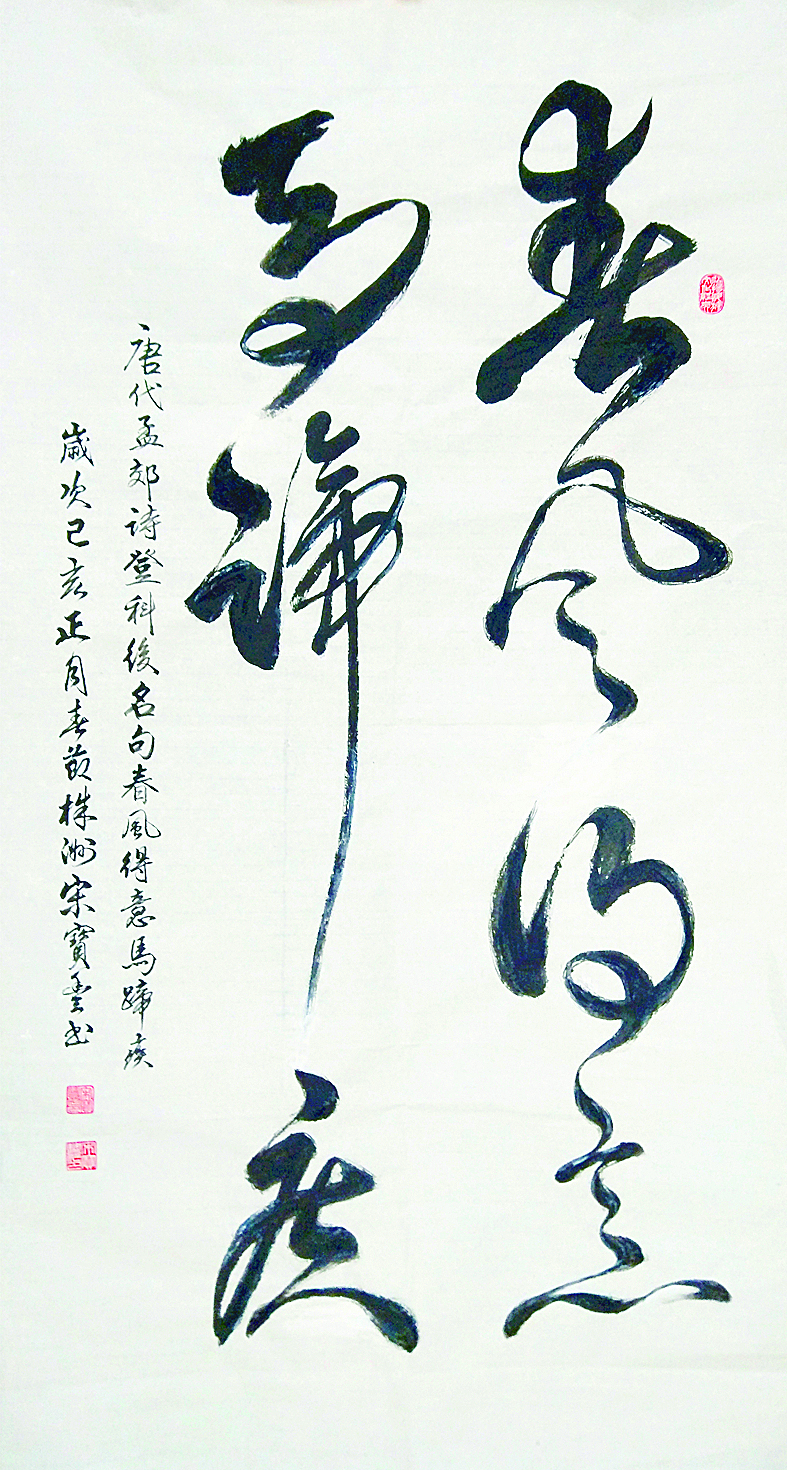 春风得意
马蹄疾
唐代孟郊诗登科後名句春風得意馬蹄疾
歲次己亥正月春节株洲宋寶豊书